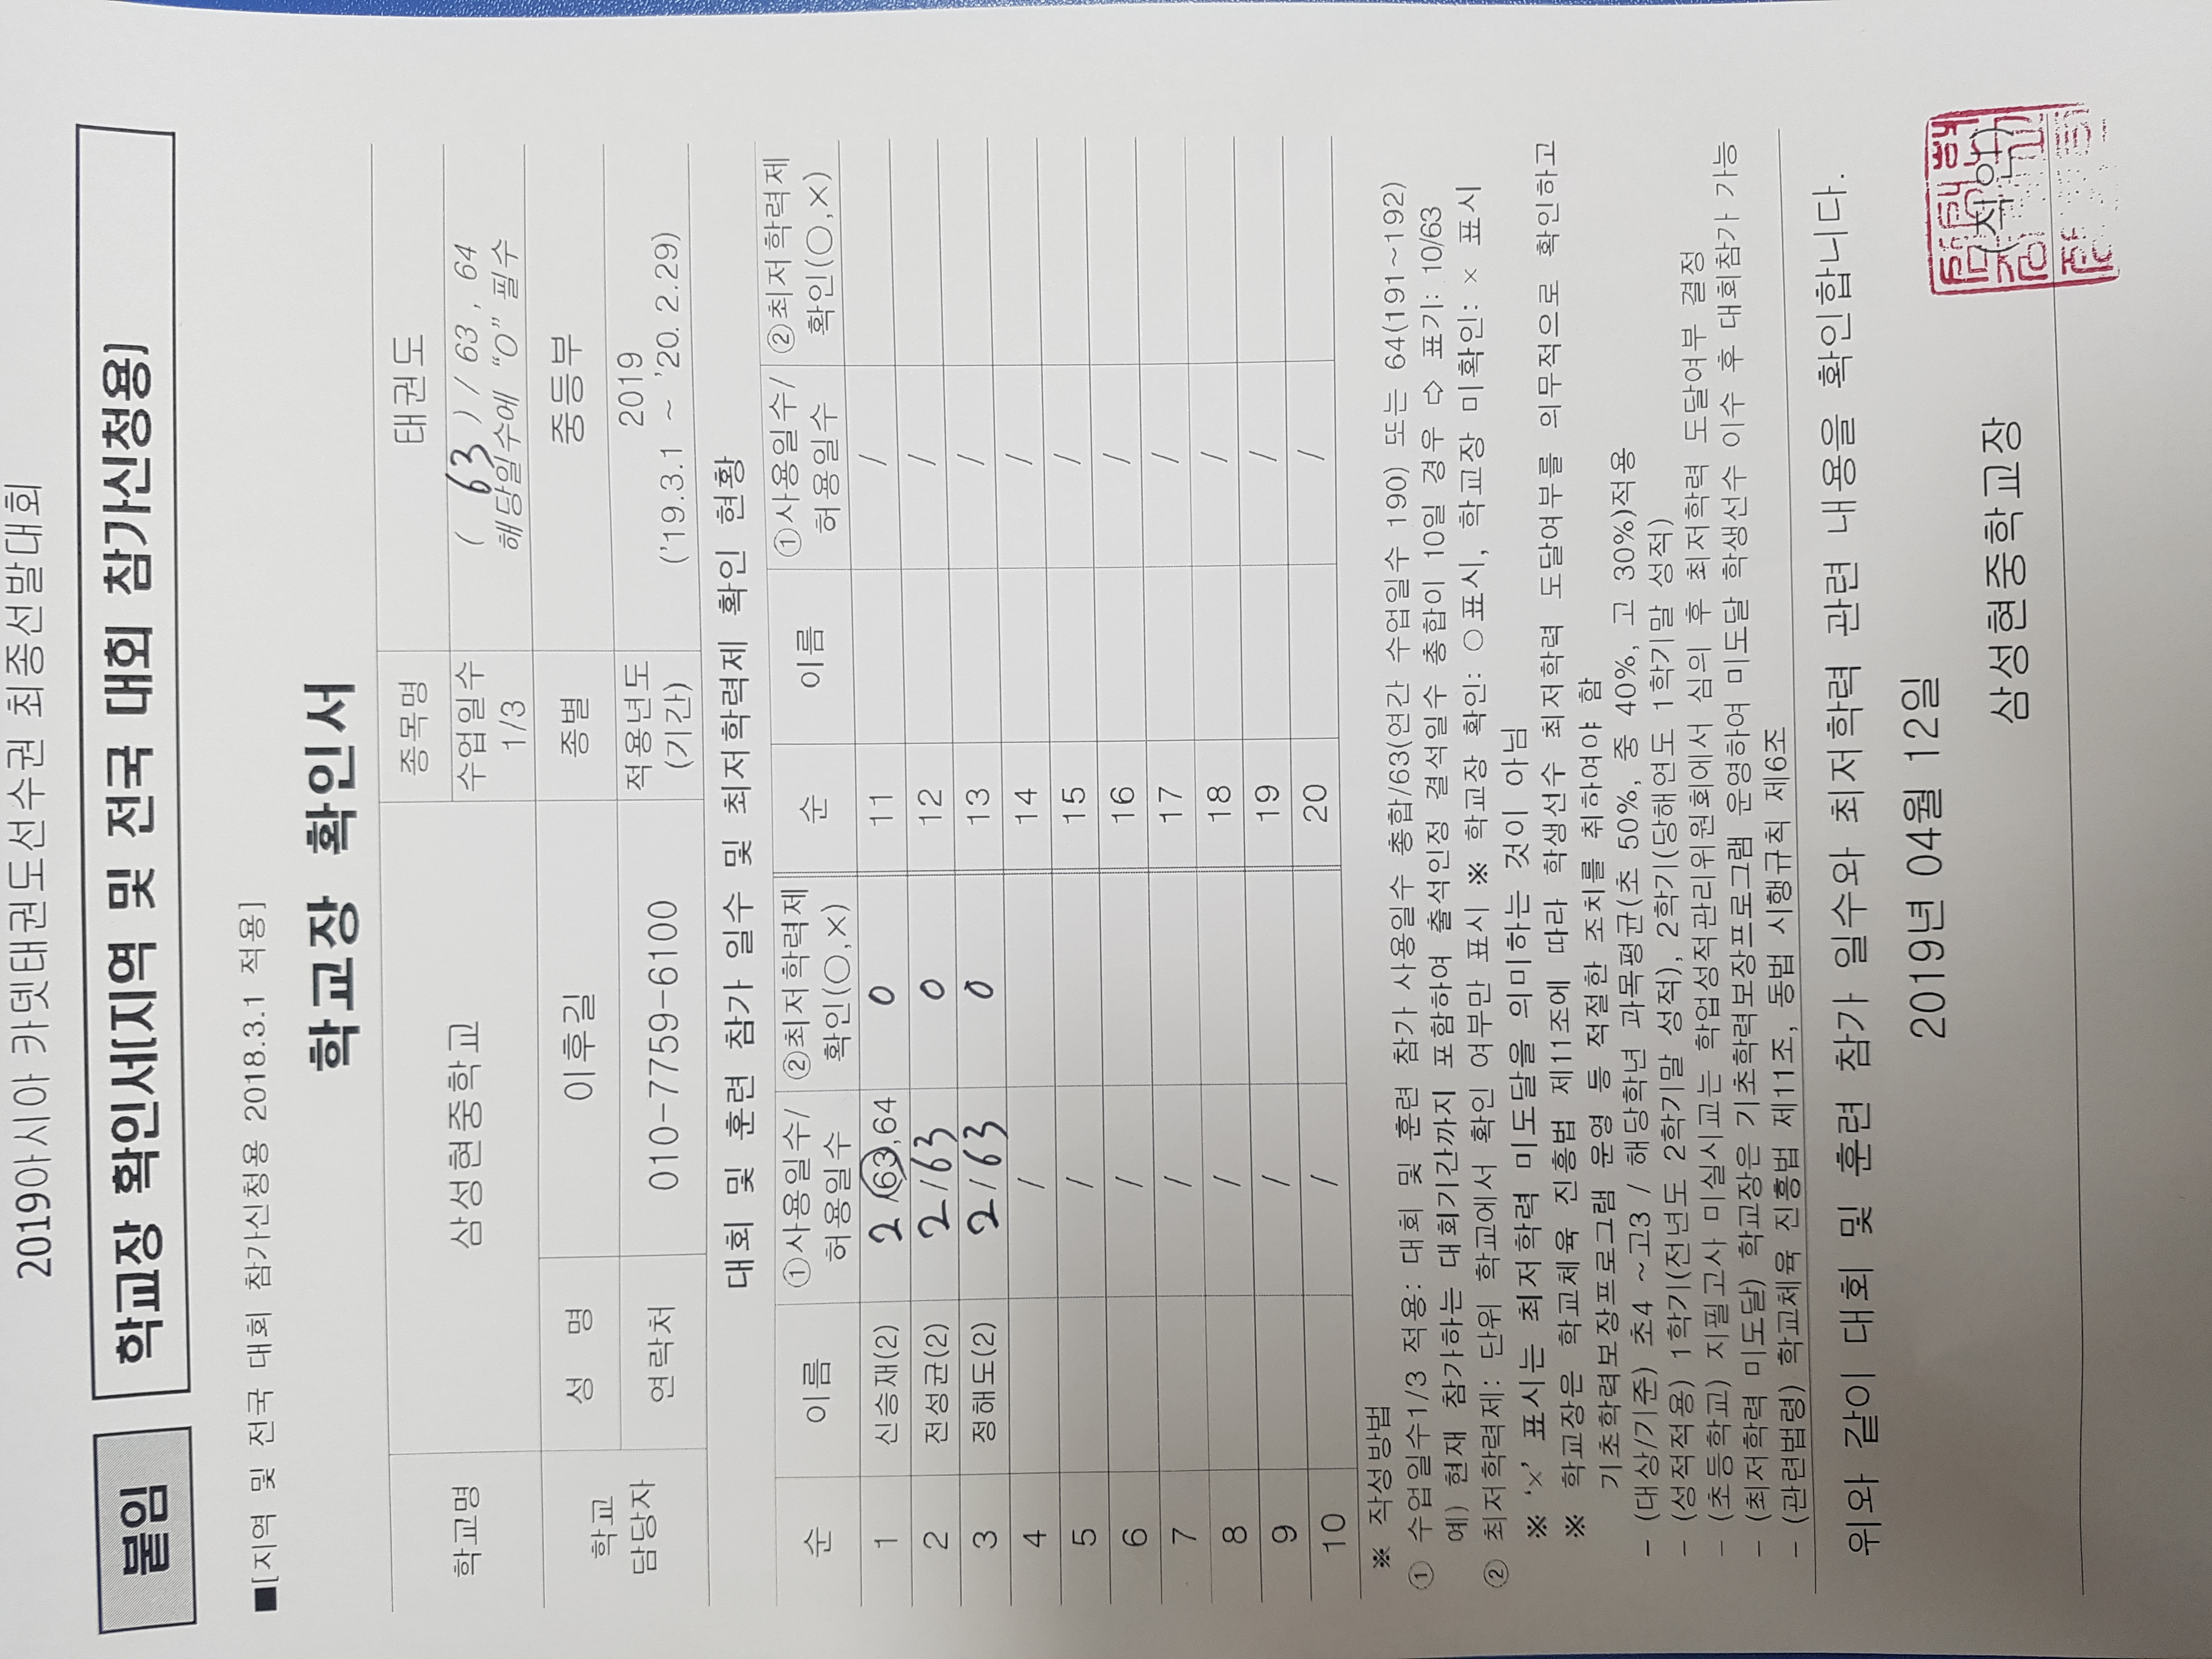 2019아시아 카뎃태권도선수권 최종선발대회
붙임 학교장 확인서[지역 및 전국 대회 참가신청용]
■[지역 및 전국 대회 참가신청용 2018.3.1 적용]
학교장 확인서
학교명 삼성현중학교 종목명 태권도
수업일수 1/3 ( 63 ) / 63 , 64
해당일수에 "O" 필수
학교 담당자 성 명 이후길 종별 중등부
연락처 010-7759-6100 적용년도 (기간) 2019
('19.3.1 ~ '20. 2.29)
대회 및 훈련 참가 일수 및 최저학력제 확인 현황
순 이름 ①사용일수/허용일수 ②최저학력제 확인(○,×) 순 이름 ①사용일수/허용일수 ②최저학력제 확인(○,×)
1 신승재(2) 2/63,64 0 11 /
2 전성균(2) 2/63 0 12 /
3 정해도(2) 2/63 0 13 /
4 / 14 /
5 / 15 /
6 / 16 /
7 / 17 /
8 / 18 /
9 / 19 /
10 / 20 /
※ 작성방법
① 수업일수1/3 적용: 대회 및 훈련 참가 사용일수 총합/63(연간 수업일수 190) 또는 64(191~192)
예) 현재 참가하는 대회기간까지 포함하여 출석인정 결석일수 총합이 10일 경우 ⇨ 표기: 10/63
② 최저학력제: 단위 학교에서 확인 여부만 표시 ※ 학교장 확인: ○표시, 학교장 미확인: × 표시
※ '×' 표시는 최저학력 미도달을 의미하는 것이 아님
※ 학교장은 학교체육 진흥법 제11조에 따라 학생선수 최저학력 도달여부를 의무적으로 확인하고
기초학력보장프로그램 운영 등 적절한 조치를 취하여야 함
- (대상/기준) 초4 ~고3 / 해당학년 과목평균(초 50%, 중 40%, 고 30%)적용
- (성적적용) 1학기(전년도 2학기말 성적), 2학기(당해연도 1학기말 성적)
- (초등학교) 지필고사 미실시교는 학업성적관리위원회에서 심의 후 최저학력 도달여부 결정
- (최저학력 미도달) 학교장은 기초학력보장프로그램 운영하여 미도달 학생선수 이수 후 대회참가 가능
- (관련법령) 학교체육 진흥법 제11조, 동법 시행규칙 제6조
위와 같이 대회 및 훈련 참가 일수와 최저학력 관련 내용을 확인합니다.
2019년 04월 12일
삼성현중학교장 (직인)